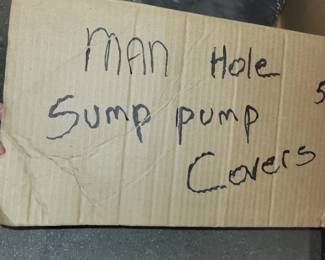 MAN Hole
Sump pump
Covers